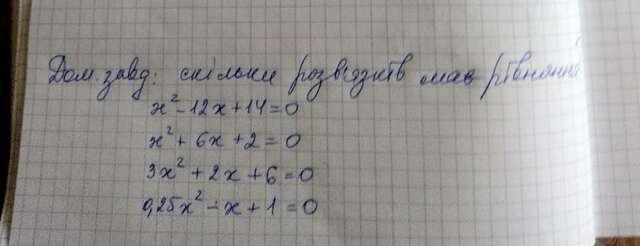 Дом. завд: скільки розв'язків має рівняння
x² - 12x + 14 = 0
x² + 6x + 2 = 0
3x² + 2x + 6 = 0
0,25x² - x + 1 = 0